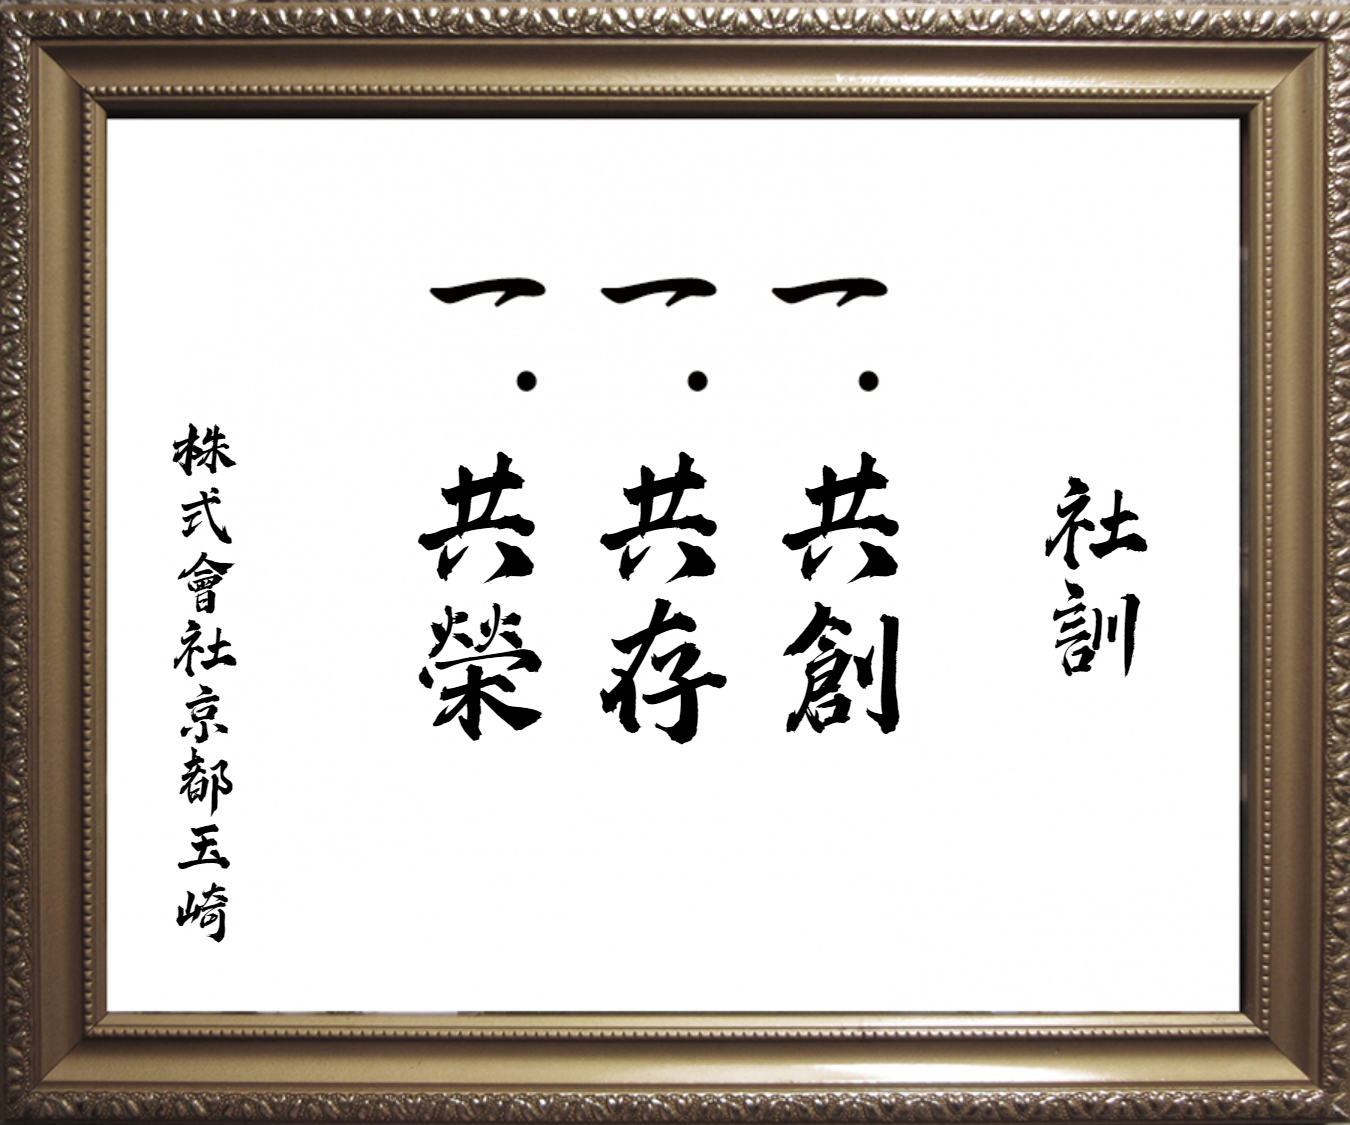 社訓
一・共創
一・共存
一・共榮
株式會社京都玉崎